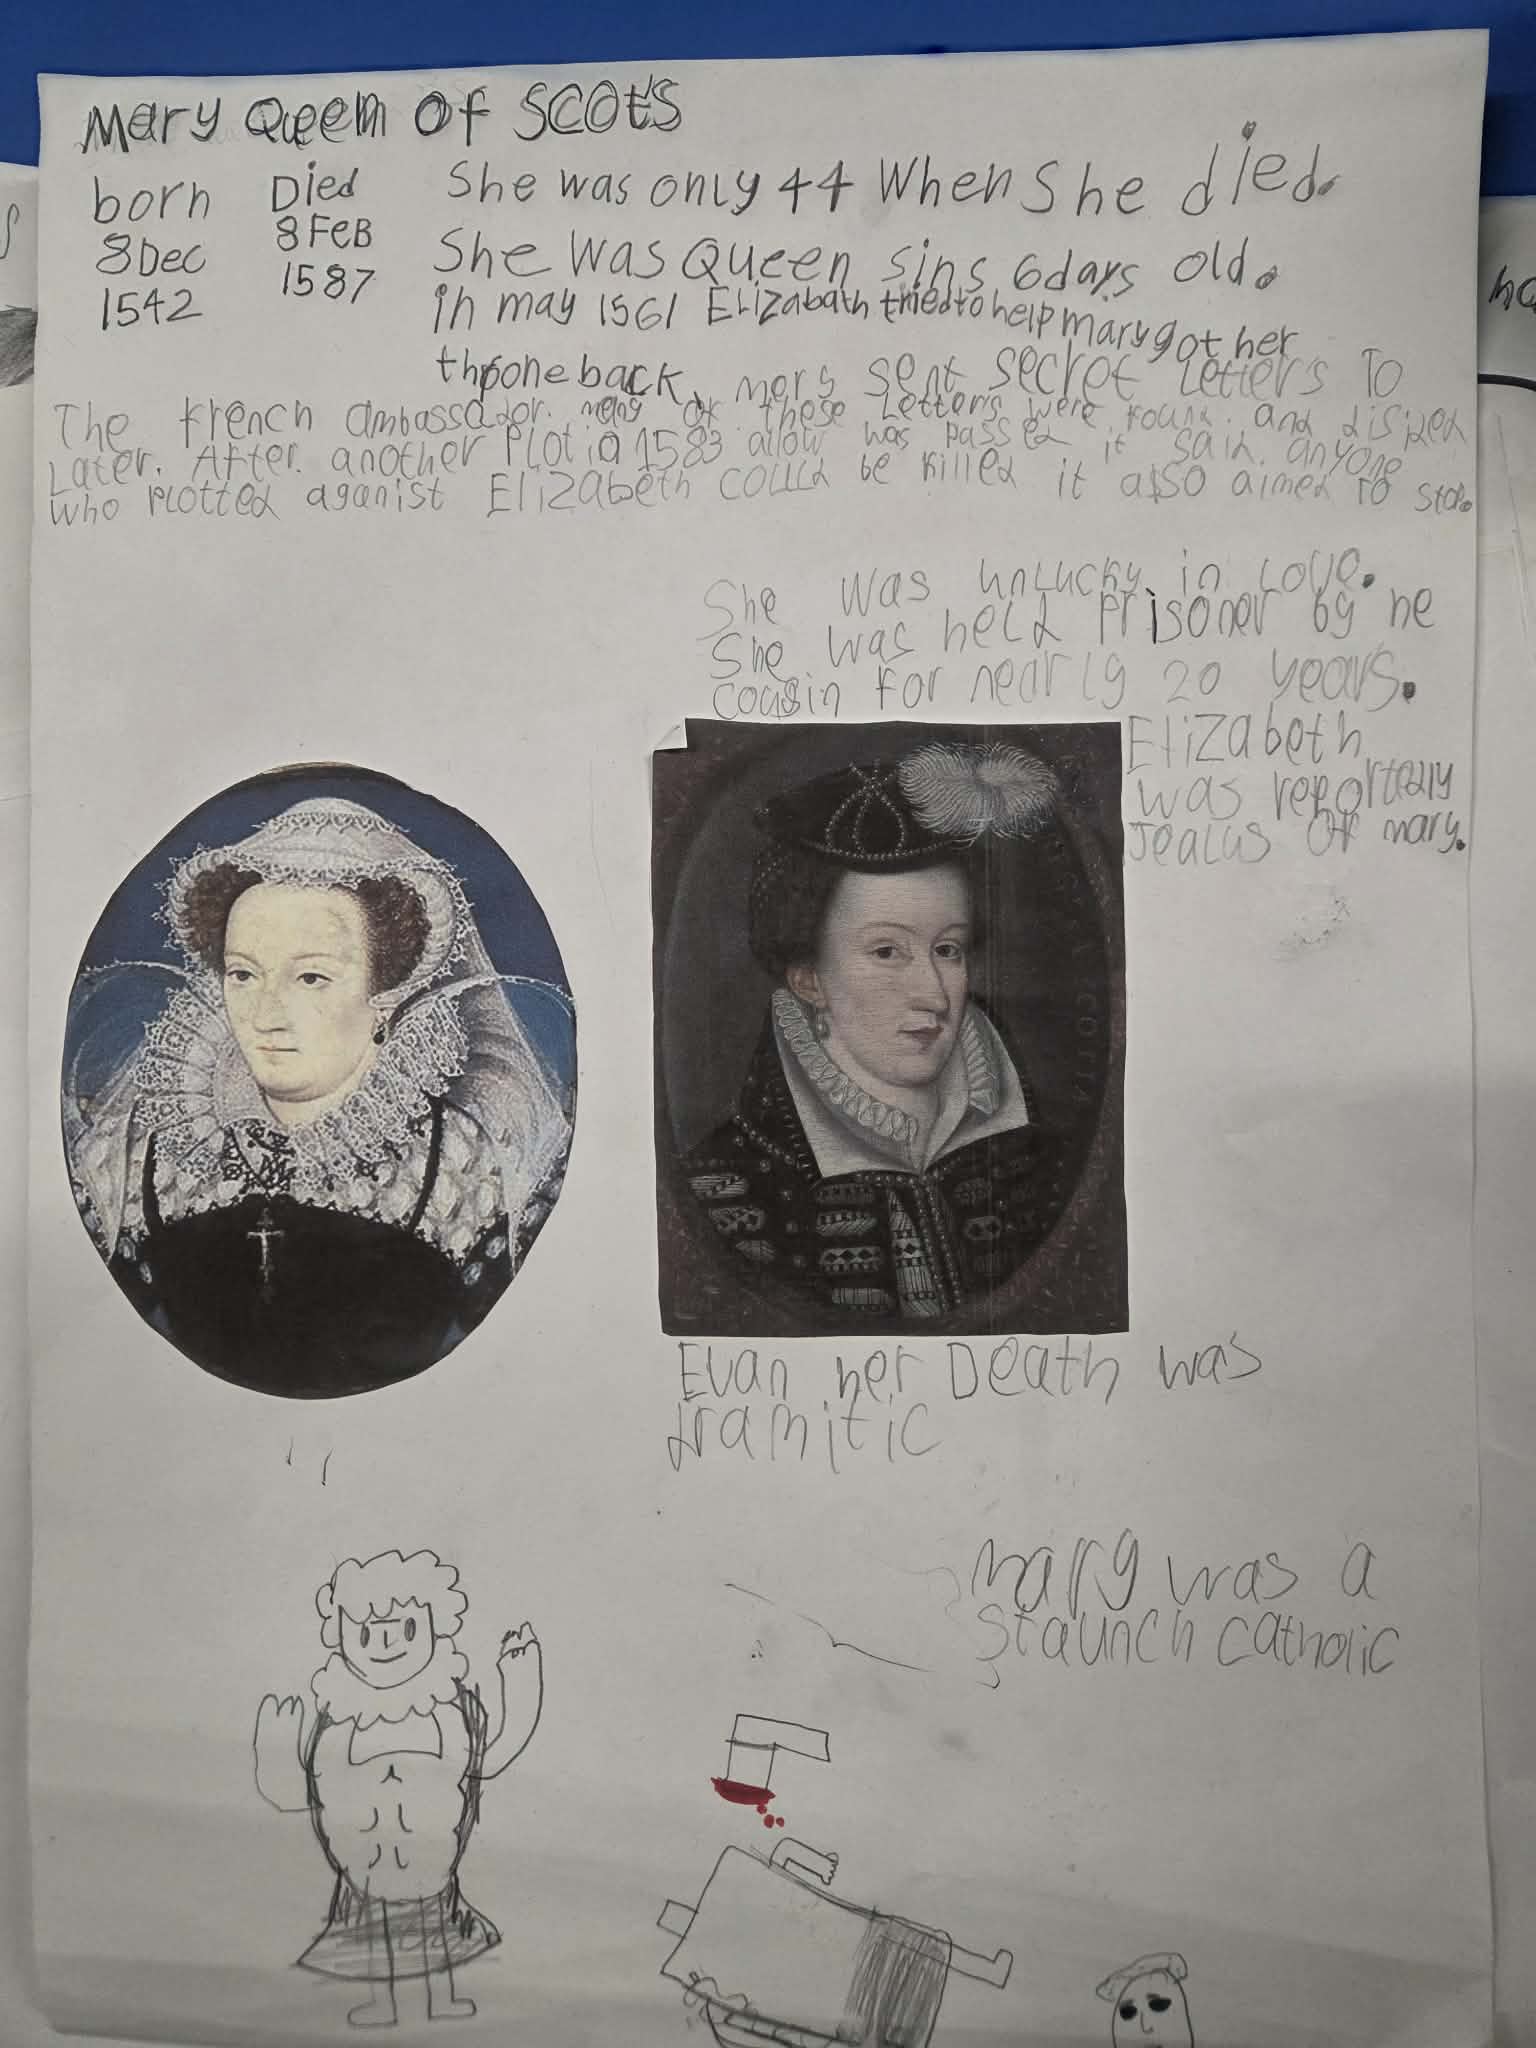 Mary Queen Of SCOtS
born
8Dec
1542
Died
8FeB
1587
She was only 44 When She died.
She was Queen sins 6days old.
in may 1561 Elizabath tried to help mary got her
throne back, mers sent secret Letters To
The french ambassador. many of these Letters were found. and disized
Later. After. another Plot in 1583 allow was passed it said. anyone
who Plotted aganist Elizabeth could be killed it also aimed to stop.
She was unlucky in love.
She was held Prisoner by he
cousin for nearly 20 years.
Elizabeth
was reportedly
Jealus Of mary.
SCOTIA
Evan her Death was
dramitic
mary was a
Staunch catholic
ha